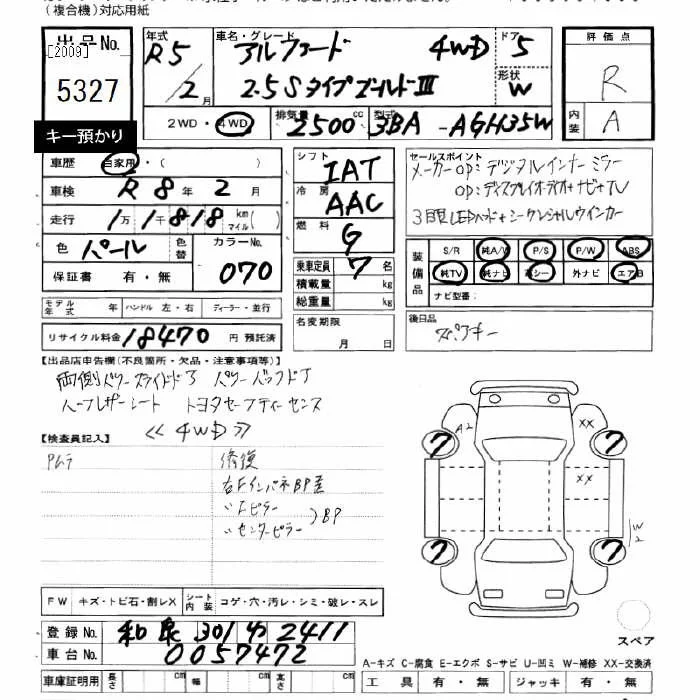 (複合機)対応用紙
出品No.
[2009]
5327
キー預かり
年式
R5
/2月
車名・グレード
アルファード 4WD
2.5SタイプゴールドⅢ
ドア
5
形状
W
評価点
R
内装
A
2WD・4WD
排気量
2500cc
型式
3BA-AGH35W
車歴 自家用・( )
車検 R8年2月
走行 1万1千818km マイル( )
色 パール
色替
カラーNo.
070
保証書 有・無
モデル年式 年 ハンドル 左・右 ディーラー・並行
リサイクル料金 18470円 預託済
シフト
IAT
冷房
AAC
燃料
G
乗車定員 7名
積載量 kg
総重量 kg
名変期限
月 日
セールスポイント
メーカーOP:デジタルインナーミラー
OP:ディスプレイオーディオ+ナビ+TV
3眼LEDヘッド+シーケンシャルウインカー
装備品
S/R 純A/W P/S P/W ABS
純TV 純ナビ 革シート 外ナビ エアB
ナビ型番:
後日品
スペアキー
【出品店申告欄(不良箇所・欠品・注意事項等)】
両側パワースライドドア パワーバックドア
ハーフレザーシート トヨタセーフティーセンス
≪4WD≫
【検査員記入】
修復
右FインパネBP歪
〃Fピラー
〃センターピラー
)BP
A2
XX
7
7
XX
7
7
W2
FW キズ・トビ石・割レX
シート内装 コゲ・穴・汚レ・シミ・破レ・スレ
スペア
登録No. 和泉 301 2411
車台No. 0057472
A-キズ C-腐食 E-エクボ S-サビ U-凹ミ W-補修 XX-交換済
車庫証明用 長さ cm 幅 cm 高さ cm
工具 有・無 ジャッキ 有・無